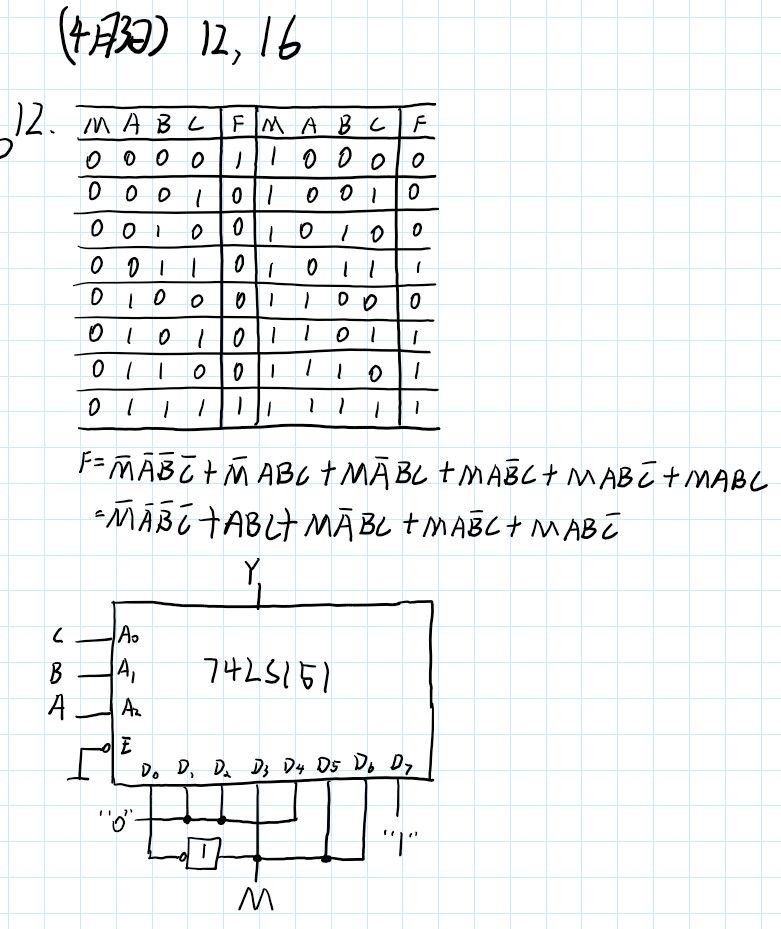 (4月3日) 12, 16
12.
M A B C F M A B C F
0 0 0 0 1 1 0 0 0 0
0 0 0 1 0 1 0 0 1 0
0 0 1 0 0 1 0 1 0 0
0 0 1 1 0 1 0 1 1 1
0 1 0 0 0 1 1 0 0 0
0 1 0 1 0 1 1 0 1 1
0 1 1 0 0 1 1 1 0 1
0 1 1 1 1 1 1 1 1 1
F= M̄ĀB̄C̄ + M̄ABC + MĀBC + MAB̄C + MABC̄ + MABC
= M̄ĀB̄C̄ + ABC + MĀBC + MAB̄C + MABC̄
Y
C A₀
B A₁ 74LS151
A A₂
E
D₀ D₁ D₂ D₃ D₄ D₅ D₆ D₇
"0"
"1"
1
M